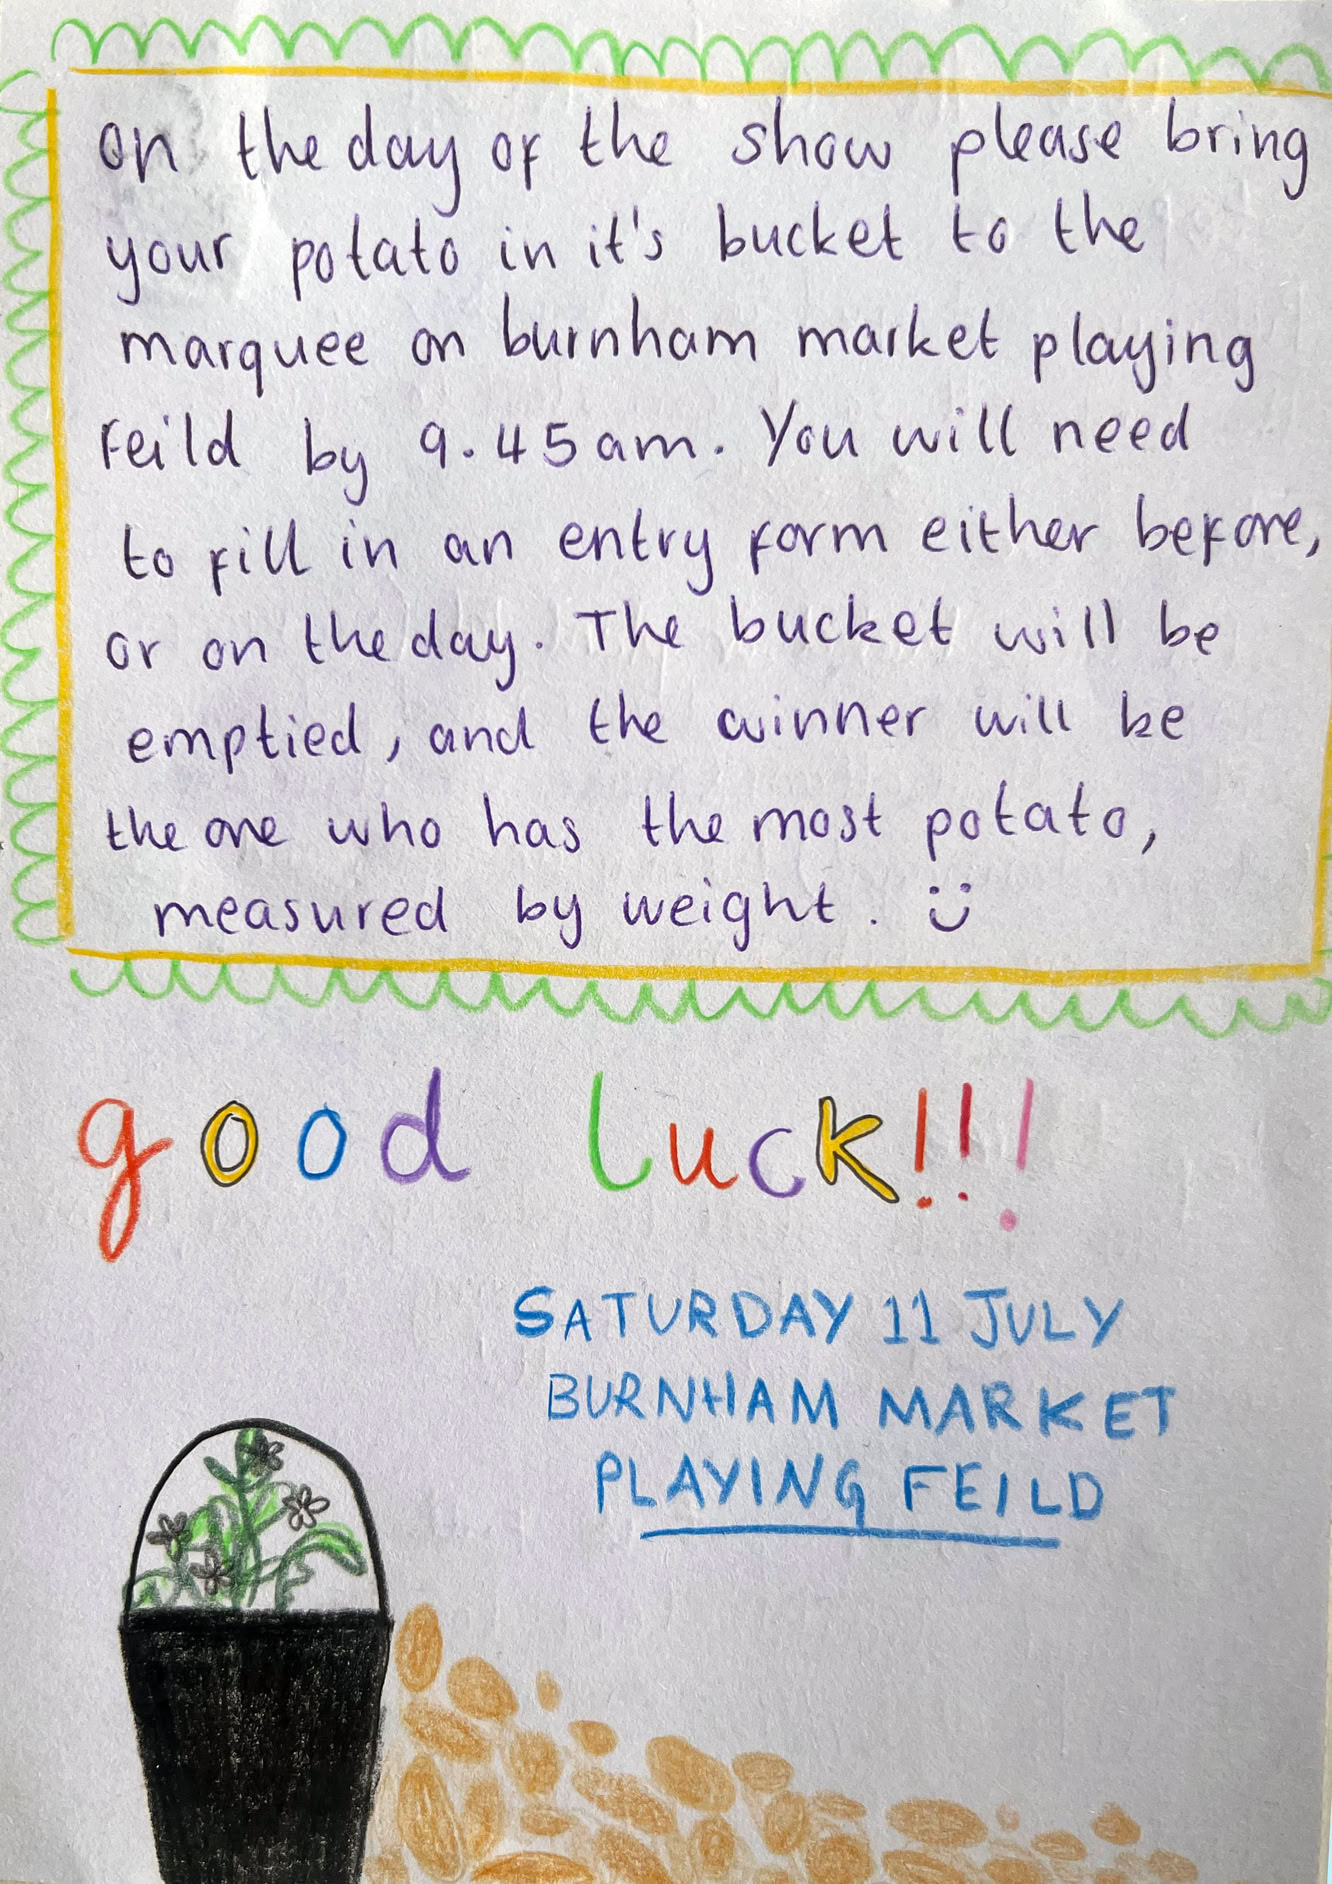 on the day of the show please bring
your potato in it's bucket to the
marquee on burnham market playing
feild by 9.45am. You will need
to fill in an entry form either before,
or on the day. The bucket will be
emptied, and the winner will be
the one who has the most potato,
measured by weight. :)
good luck!!!
SATURDAY 11 JULY
BURNHAM MARKET
PLAYING FEILD